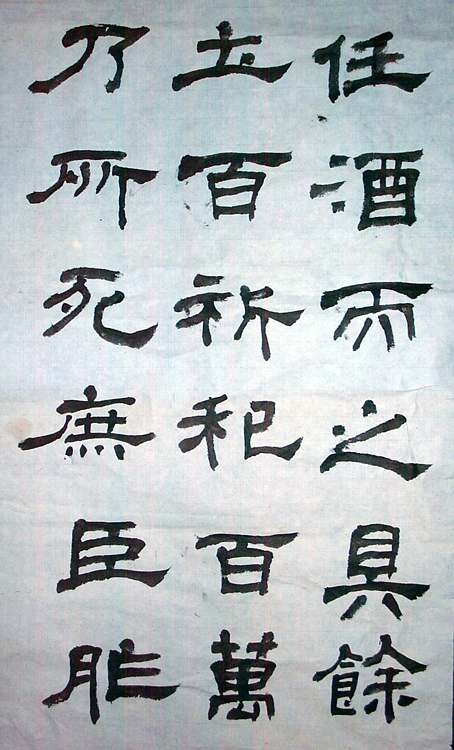 任酒而之具餘
土百祈祀百萬
乃所死庶臣胙